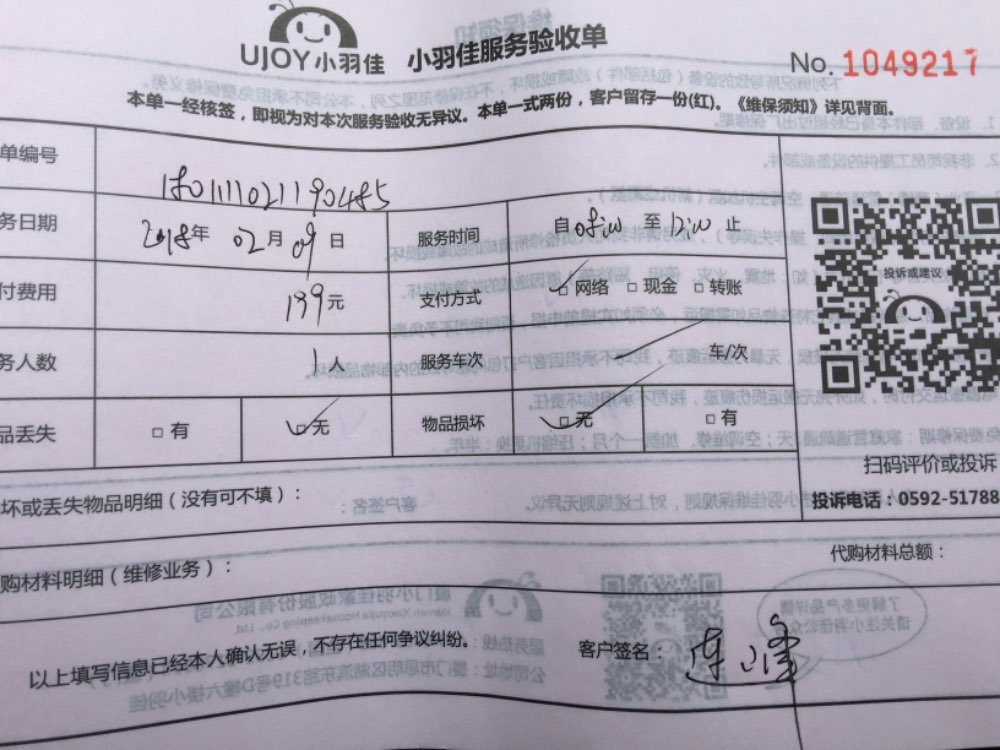 UJOY小羽佳 小羽佳服务验收单
No. 1049217
本单一经核签，即视为对本次服务验收无异议。本单一式两份，客户留存一份(红)。《维保须知》详见背面。
单编号 1801111021190485
务日期 2018年 02月 09日 服务时间 自08:00 至12:00 止
付费用 199元 支付方式 网络 □ 现金 □ 转账
务人数 1人 服务车次 车/次
品丢失 □ 有 无 物品损坏 □无 □ 有
投诉或建议
扫码评价或投诉
坏或丢失物品明细（没有可不填）：
投诉电话：0592-51788
代购材料总额：
购材料明细（维修业务）：
以上填写信息已经本人确认无误，不存在任何争议纠纷。
客户签名：